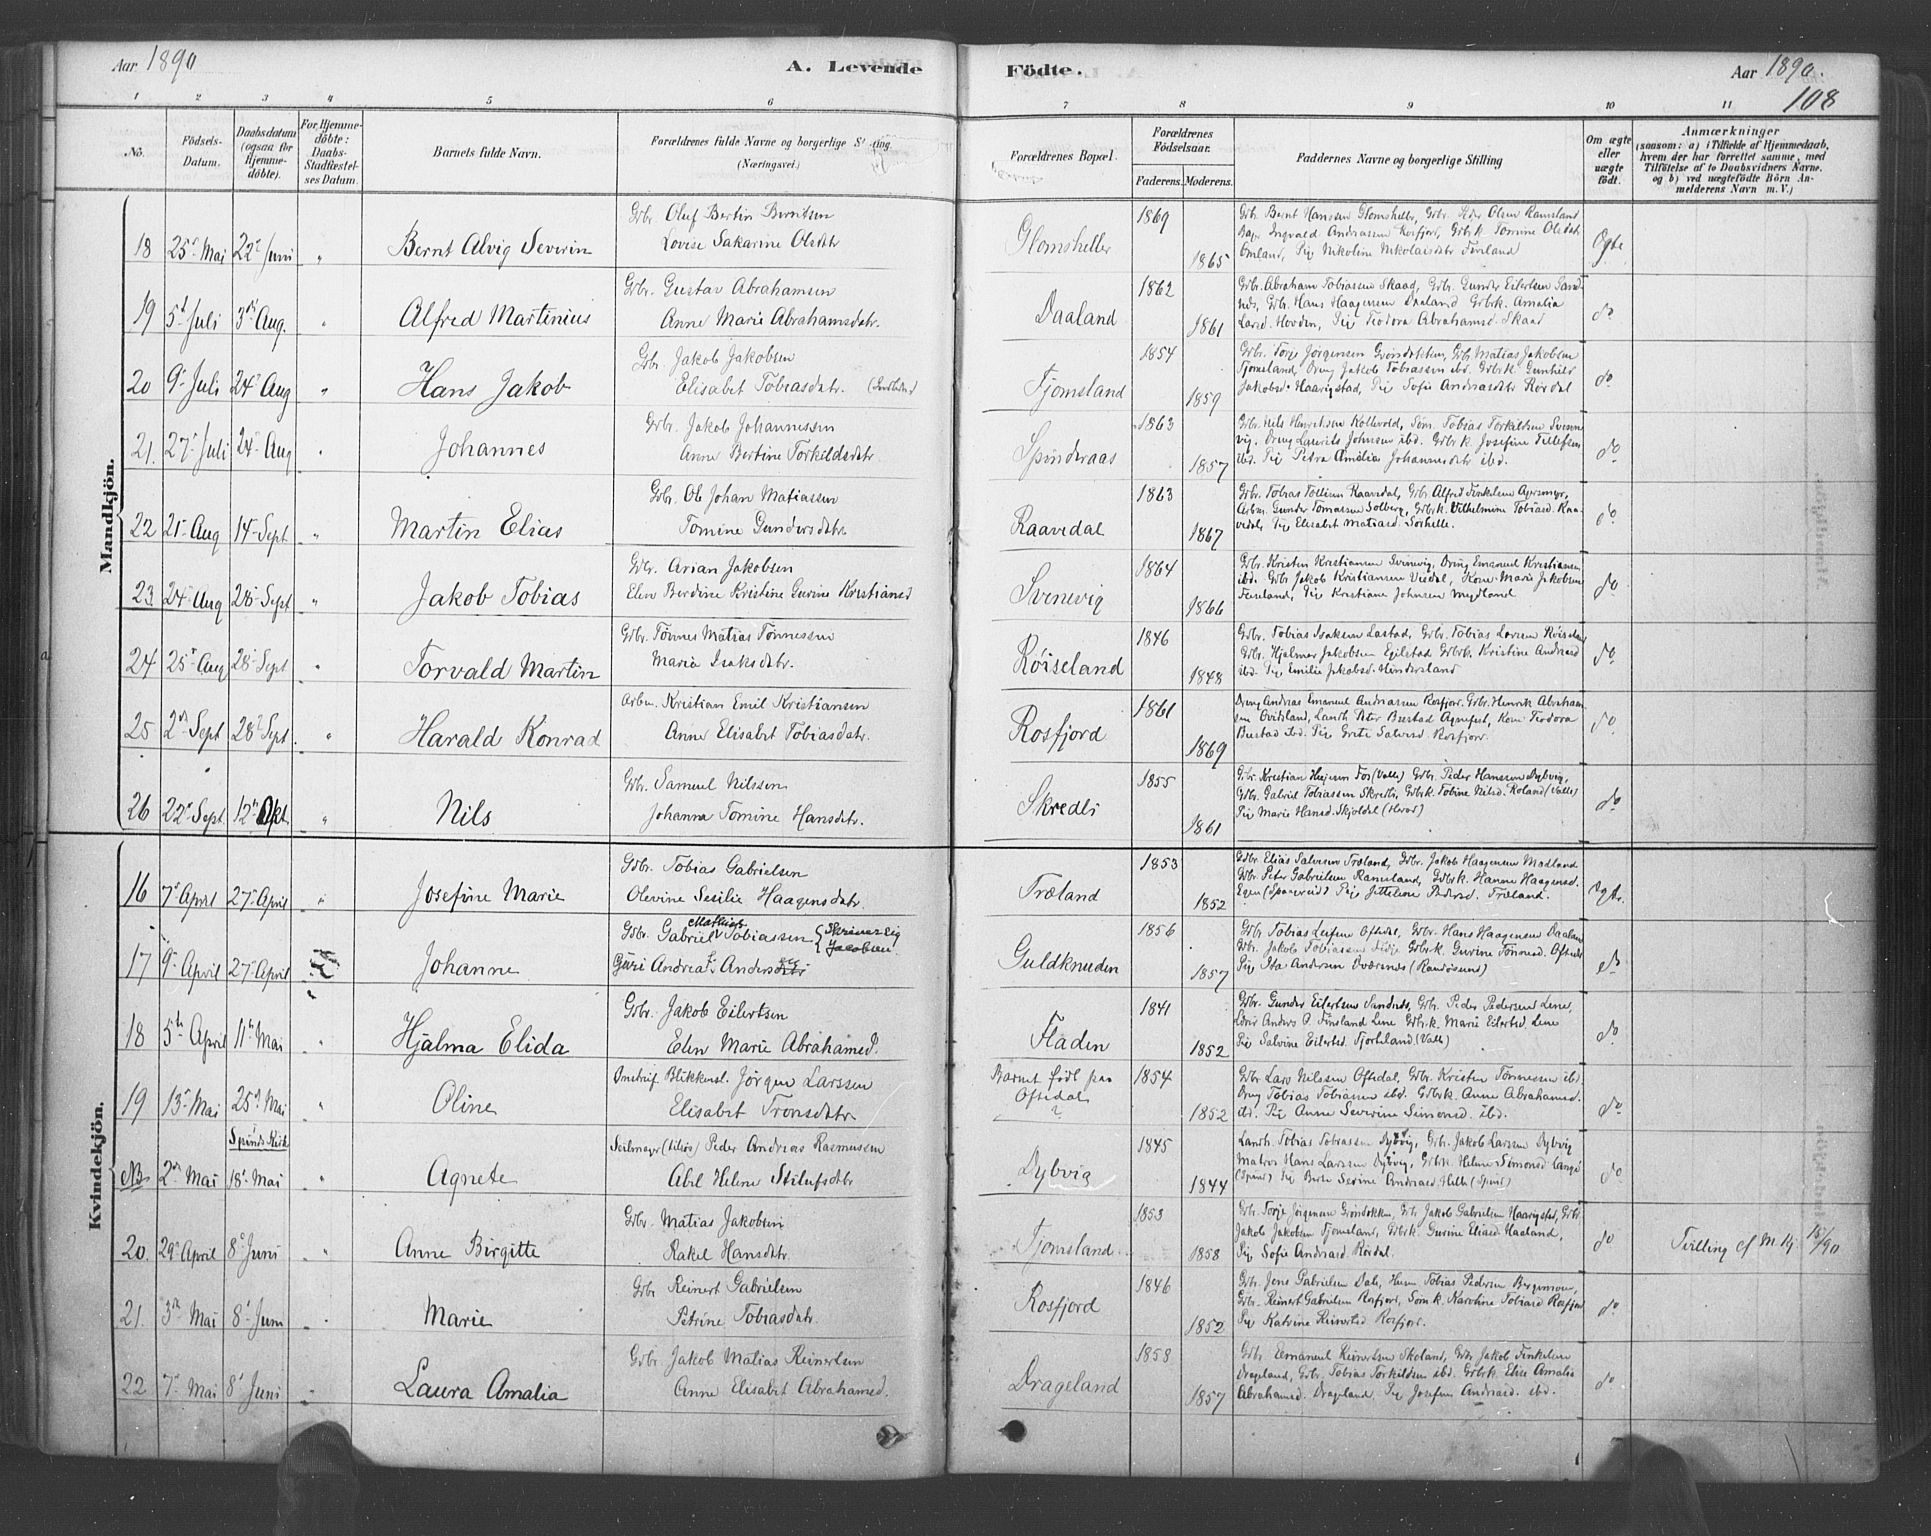 Aar 1890
A. Levende
Födte.
Aar 1890.
108
1 2 3 4 5 6 7 8 9 10 11
No.
Födsels-Datum.
Daabsdatum (ogsaa for Hjemme-döbte).
For Hjemme-döbte: Daabs-Stadfæstel-ses Datum.
Barnets fulde Navn.
Forældrenes fulde Navne og borgerlige Stilling. (Næringsvei.)
Forældrenes Bopæl.
Forældrenes Födselsaar.
Faderens. Moderens.
Faddernes Navne og borgerlige Stilling
Om ægte eller uægte födt.
Anmærkninger
(saasom: a) i Tilfælde af Hjemmedaab, hvem der har forrettet samme, med Tilföielse af to Daabsvidners Navne, og b) ved uægtefödte Börn An-melderens Navn m. V.)
Mandkjön.
18 25 Mai 22 Juni " Bernt Alvig Severin
Gbr. Oluf Bertin Berntsen
Lovise Sakarine Olsdtr
Glomsheller 1869 1865
Gbr. Bernt Hanssen Glomsheller, Gbr. Peder Olsen Ramsland
Ingvald Andreassen Rosfjord, Gbrk. Tomine Olsdatr
Omland, Pig Nikoline Nikolaisdatr Fineland
Ægte
19 5 Juli 3 Aug. " Alfred Martinius
Gbr. Gustav Abrahamsen
Anne Marie Abrahamsdatr.
Daaland 1862 1861
Gbr. Abraham Tobiassen Skaad, Gbr. Gunder Eilertsen Sand-
nes, Gbr. Hans Haagensen Daaland Gbrk. Amalia
Larsd. Hovden, Pig Teodora Abrahamsd. Skaad
do
20 9 Juli 24 Aug " Hans Jakob
Gbr. Jakob Jakobsen
Elisabet Tobiasdatr.
Tjomsland 1854 1859
Gbr. Torje Jörgensen Gröndokken, Gbr. Matias Jakobsen
Tjomsland, Dreng Jakob Tobiassen ibd. Gbrk. Gunhild
Jakobsd. Haarigstad, Pig Sofie Andreasdtr Rördal
do
21. 27 Juli 24 Aug " Johannes
Gbr. Jakob Johannessen
Anne Bertine Torkildsdatr.
Spinderaas 1863 1857
Gbr. Nils Henriksen Kollevold, Tobias Torkildsen Svenne-
vig. Dreng Laurits Johnsen ibd. Gbrk. Josefine Tillefsen
ibd. Pig Petra Amalia Johannesdatr ibd.
do
22 21 Aug 14 Sept " Martin Elias
Gbr. Ole Johan Matiassen
Tomine Gundersdatr.
Raavedal 1863 1867
Gbr. Tobias Tollisen Raavedal, Gbr. Alfred Finkelsen
Arbm. Gunder Tomassen Solberg, Gbrk. Vilhelmine Tobiasd. Raa-
vedal, Pig Elisabet Matiasd.
do
23 24 Aug 28 Sept " Jakob Tobias
Gbr. Arian Jakobsen
Elen Berdine Kristine Gurine Kristiansd
Svinevig 1864 1866
Gbr. Kristen Kristiansen Svinevig, Dreng Emanuel Kristiansen
ibd. Gbr. Jakob Kristiansen Vigdal, Kone Marie Jakobsen
Pig Kristiane Johnsen Mydland
do
24 25 Aug 28 Sept " Torvald Martin
Gbr. Tönnes Matias Tönnessen
Maria Isaksdatr.
Röiseland 1846 1848
Gbr. Tobias Isaksen Lastad, Gbr. Tobias Larsen Röiseland
Gbr. Hjalmar Jakobsen Egilstad Gbrk. Kristine Andreasd
ibd. Pig Emilie Jakobsd. Hindersland
do
25 2 Sept 28 Sept. " Harald Konrad
Arbm. Kristian Emil Kristiansen
Anne Elisabet Tobiasdatr.
Rosfjord 1861 1869
Dreng Andreas Emanuel Andreassen Rosfjord, Gbr. Henrik Abraham-
sen Kvidsland, Landh. Peter Bustad Agnefest, Kone Teodora
Bustad ibd. Pig Grete Salvesd. Rosfjord.
do
26 22 Sept 12 Okt. " Nils
Gbr. Samuel Nilssen
Johanna Tomine Hansdatr.
Skredli 1855 1861
Gbr. Kristian Foss (Valle) Gbr. Peder Hanssen Dybvig,
Gbr. Gabriel Tobiassen Skredli, Gbrk. Tobine Nilsd. Roland (Valle)
Pig Marie Hansd. Skjoldal (Herad)
do
Kvindekjön.
16 7 April 27 April " Josefine Marie
Gbr. Tobias Gabrielsen
Olevine Sesilie Haagensdatr.
Træland 1853 1852
Gbr. Elias Salvesen Træland, Gbr. Jakob Haagensen Madland
Gbr. Peter Gabrielsen Ramsland, Gbrk. Hanne Haagensd.
Egen (Spangereid) Pig Jetteline Pedersd. Træland.
ægte.
17 9 April 27 April Johanne
Gbr. Gabriel Mathias Tobiassen { Jacobsen
Guri Andrea Anders
Guldknuden 1856 1857
Gbr. Tobias Leifsen Oftedal, Gbr. Hans Haagensen Daaland
Gbr. Jakob Tobiassen Gbrk. Gurine Tönnesd. Oftedal
Pig Ida Andersen Dværsnes (Randösund)
do
18 5 April 11 Mai " Hjalma Elida
Gbr. Jakob Eilertsen
Elen Marie Abrahamsd.
Fladen 1841 1852
Gbr. Gunder Eilertsen Sandnes, Gbr. Peder Pedersen Lene,
Lærer Anders P. Finsland Lene Gbrk. Marie Eilertsd. Lene
Pig Salvine Eilertsd. Fjorteland (Valle)
do
19 13 Mai 25 Mai " Oline
Omstreif. Blikkensl. Jörgen Larssen
Elisabet Tronsdatr
Barnet födt paa
Oftedal
1854 1852
Gbr. Lars Nilssen Oftedal, Gbr. Kristen Tönnessen ibd.
Dreng Tobias Tobiassen ibd. Gbrk. Anne Abrahamsd.
ibd. Pig Anne Severine Simonsd. ibd.
do
NB 2 Mai Spinds Kirk 18 Mai " Agnete
Seilmager (tilsjøs) Peder Andreas Rasmussen
Abel Helene Stilufsdtr
Dybvig 1845 1844
Landh. Tobias Tobiassen Dybvig, Gbr. Jakob Larssen Dybvig
Matros Hans Larssen Dybvig, Gbrk. Helene Simonsd. Lange
(Spind) Pig Berte Serine Andreasd. Helle (Spind)
do
20. 29 April 8 Juni " Anne Birgitte
Gbr. Matias Jakobsen
Rakel Hansdatr.
Tjomsland 1853 1858
Gbr. Torje Jörgensen Gröndokken, Gbr. Jakob Gabrielsen Haarigstad, Gbr.
Jakob Jakobsen Tjomsland, Gbrk. Gurine Eliasd. Haaland,
Pig Sofie Andreasd. Rördal.
do
Tvilling cf M Kj 15/90
21. 3 Mai 8 Juni " Marie
Gbr. Reinert Gabrielsen
Petrine Tobiasdatr.
Rosfjord 1846 1852
Gbr. Jens Gabrielsen Dale, Husm. Tobias Pedersen
Gbr. Reinert Gabrielsen Rosfjord, Karoline Tobiasd Rosfjord
Pig Katrine Reinertsd. Rosfjord.
do
22 7 Mai 8 Juni " Laura Amalia
Gbr. Jakob Matias Reinertsen
Anne Elisabet Abrahamsd.
Drageland 1858 1857
Gbr. Emanuel Reinertsen Skoland, Gbr. Jakob Finkelsen
Drageland, Gbr. Tobias Torkildsen ibd. Gbrk. Elise Amalia
Abrahamsd. Drageland, Pig Josefine Andreasd. ibd.
do